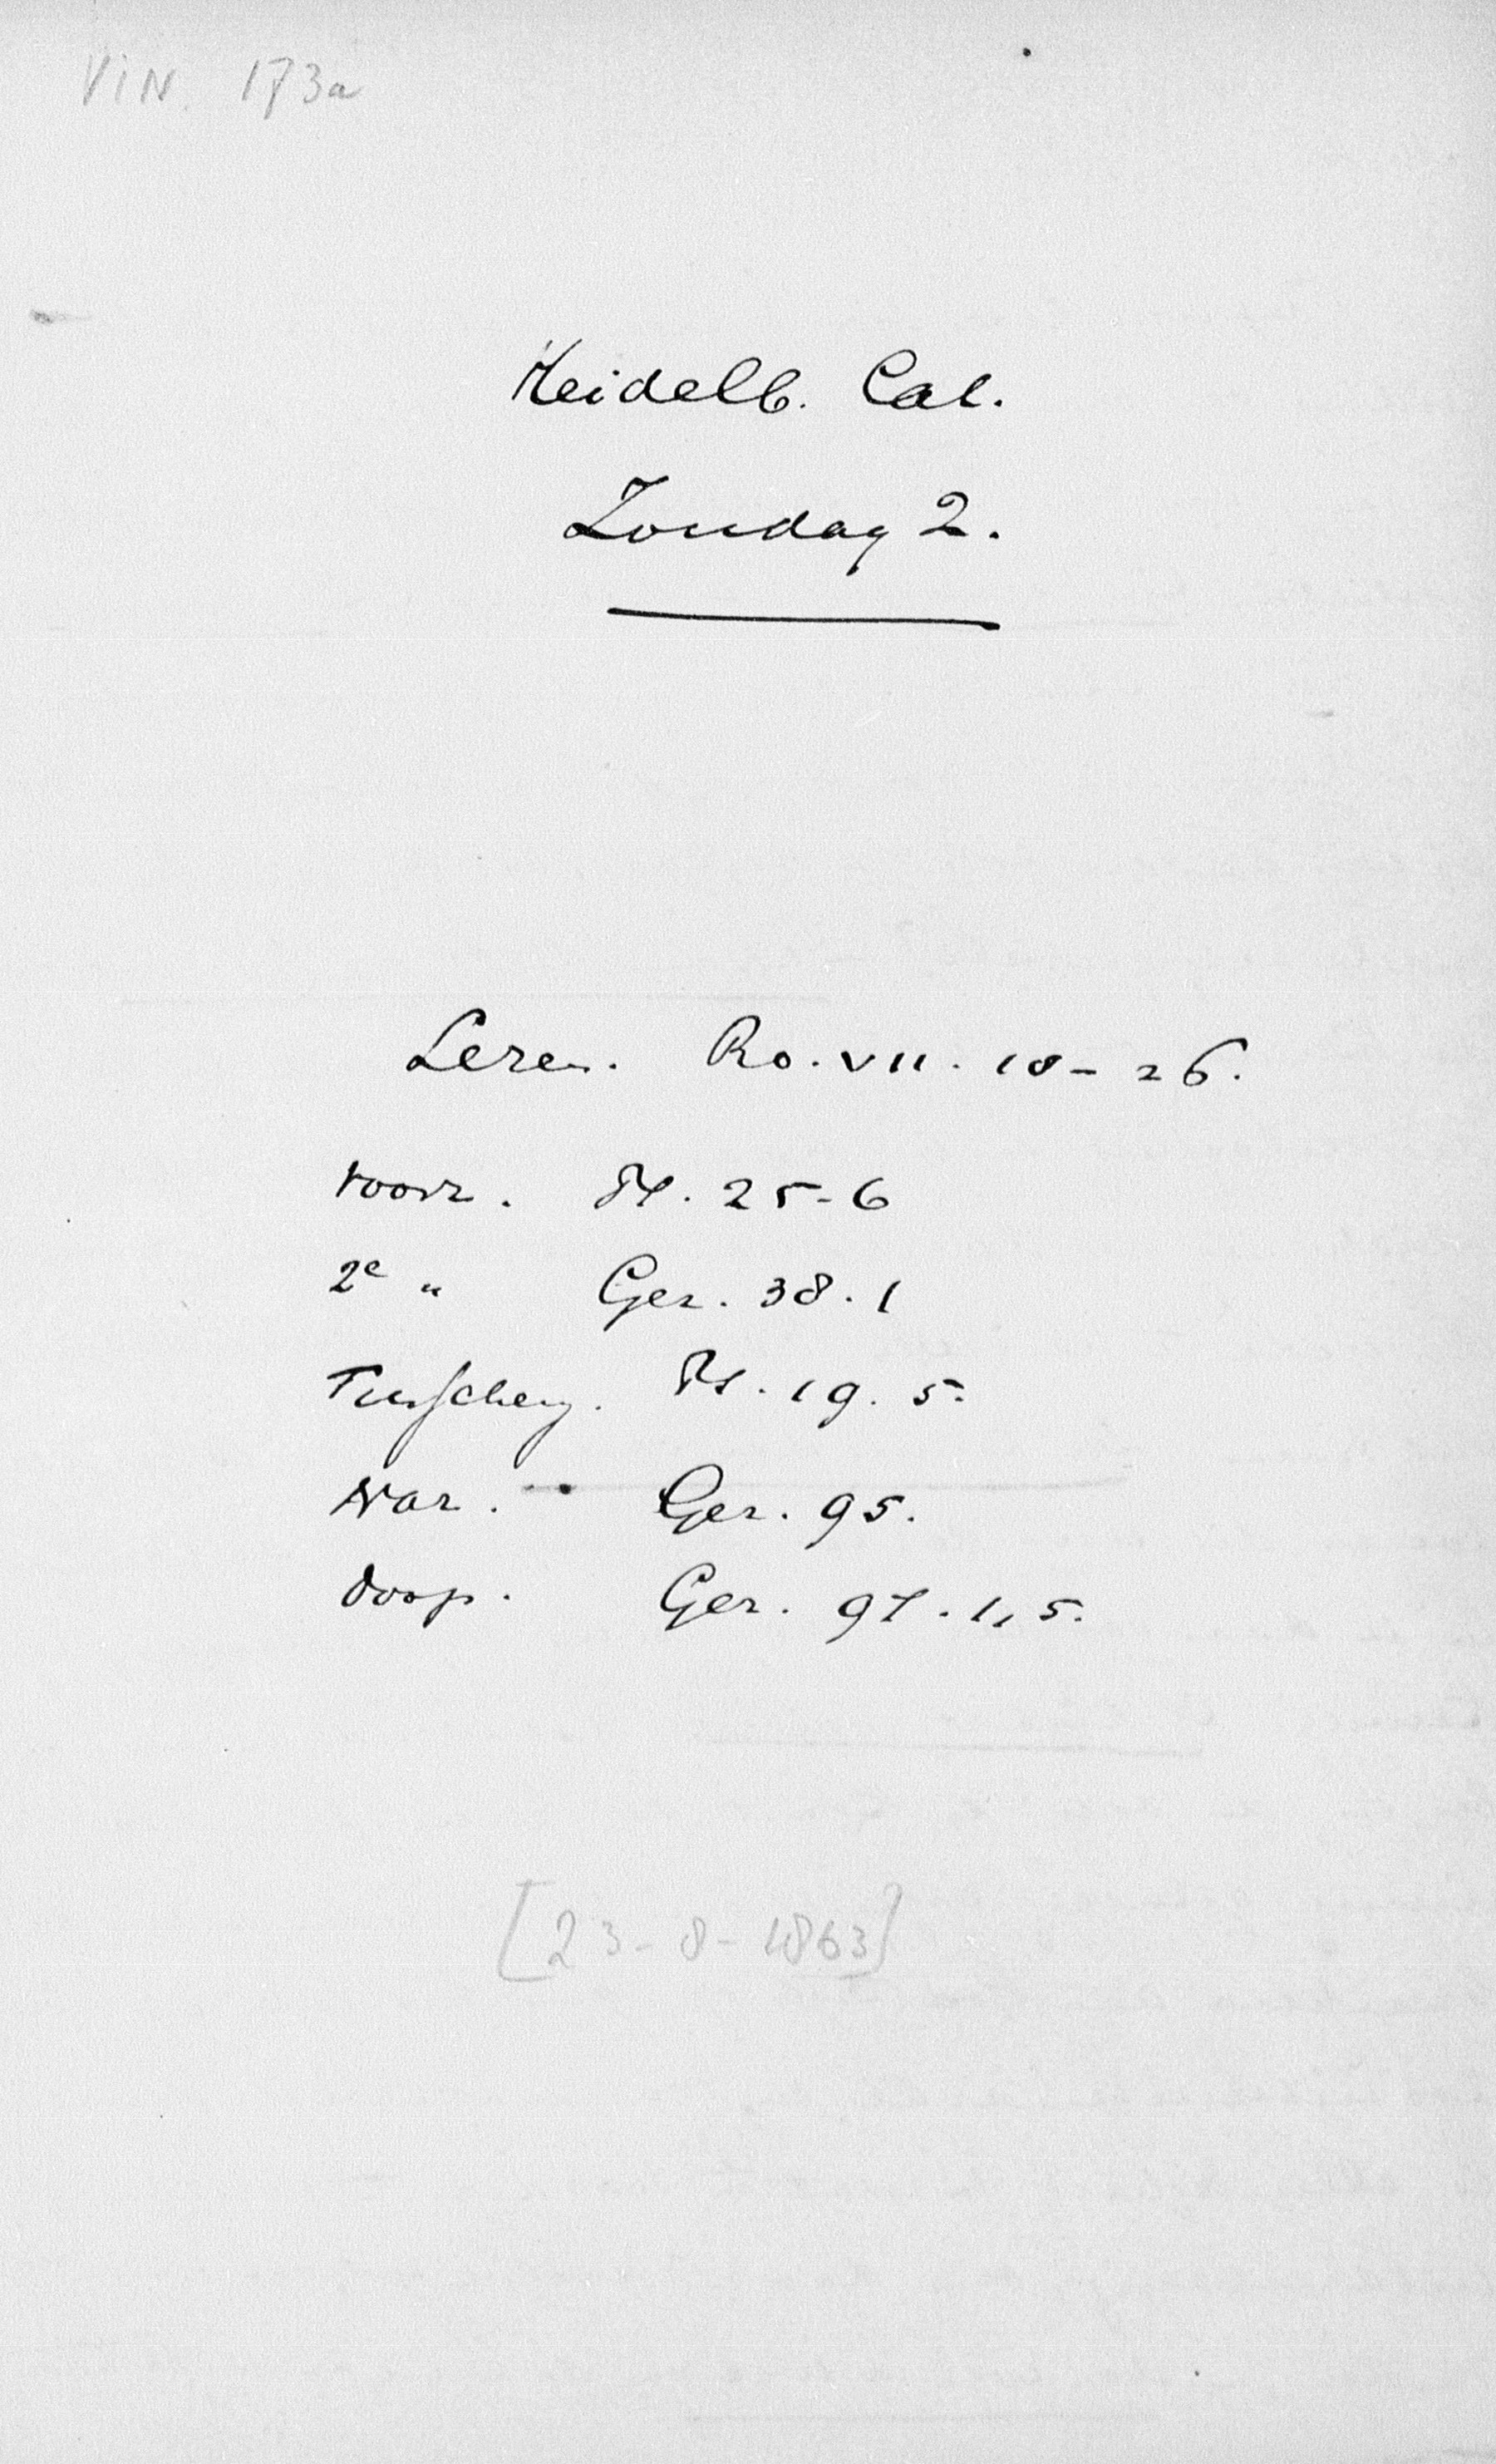 VIN. 173a
Heidelb. Cat.
Zondag 2.
Lezen. Ro. VII. 18-26.
Voorz. Ps. 25-6
2e " Gez. 38.1
Tusschenz. Ps. 19. 5.
Naz. Gez. 95.
Doop. Gez. 97. 1, 5.
[23-8-1863]